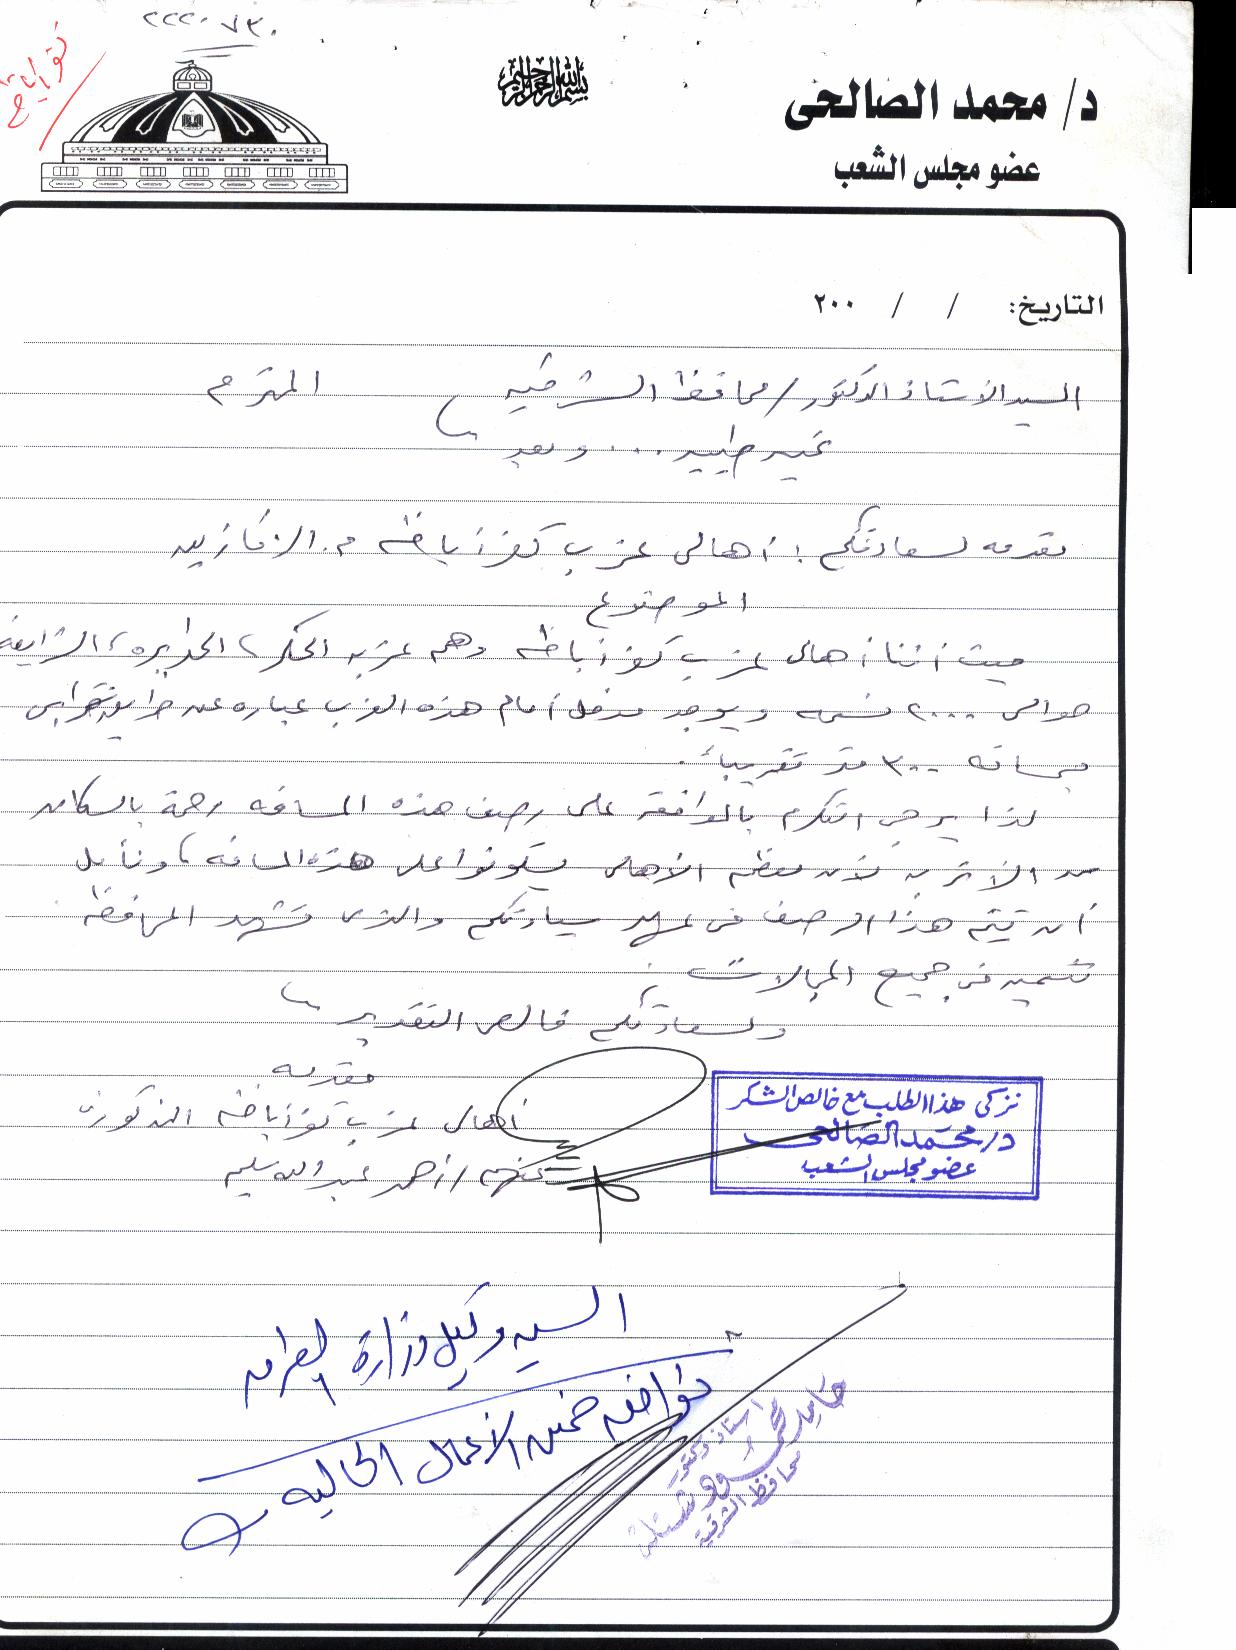 بسم الله الرحمن الرحيم
د/ محمد الصالحى
عضو مجلس الشعب
التاريخ: / / ٢٠٠
السيد الاستاذ الدكتور / محافظ الشرقيه المحترم
تحيه طيبه ... وبعد
مقدمه لسعادتكم : أهالى عزب كفر أباظه م. الزقازيق
الموضوع
حيث أننا أهالى عزب كفر أباظه وهم عزبه الحكر، الجزايره،
حوالى ٢٠٠٠ نسمه ويوجد مدخل أمام هذه العزب عباره عن طريق ترابى
مسافه ٣٠٠ متر تقريبا.
لذا يرجى التكرم بالموافقه على رصف هذه المسافه رحمة بالسكان
من الاتربه لأن معظم الأهالى هذه المسافه، ونأمل
أن يتم هذا الرصف فى عهد سيادتكم والذى تشهد المحافظه
فى جميع المجالات.
ولسعادتكم خالص التقدير
مقدمه
أهالى عزب كفر أباظه المذكورة
عنهم / أحمد عبد الله سليم
نزكى هذا الطلب مع خالص الشكر
د/ محمد الصالحى
عضو مجلس الشعب
السيد وكيل وزارة
نوافق ضمن الأعمال الحالية
استاذ دكتور
حامد محمود شتله
محافظ الشرقية